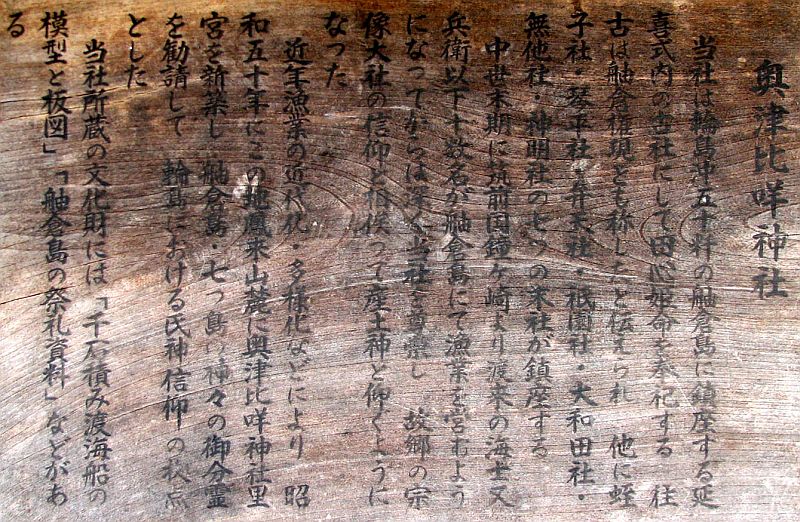 奥津比咩神社
当社は輪島沖五十粁の舳倉島に鎮座する延
喜式内の古社にして田心姫命を奉祀する 往
古は舳倉権現とも称したと伝えられ 他に蛭
子社・琴平社・弁天社・祇園社・大和田社・
無他社・神明社の七つの末社が鎮座する
中世末期に筑前国鐘ヶ崎より渡来の海士又
兵衛以下十数名が舳倉島にて漁業を営むよう
になってからは深く当社を尊崇し 故郷の宗
像大社の信仰と相俟って産土神と仰ぐように
なった
近年漁業の近代化・多様化などにより 昭
和五十年にこの地鳳来山麓に奥津比咩神社里
宮を新築し 舳倉島・七つ島の神々の御分霊
を勧請して 輪島における氏神信仰の拠点
とした
当社所蔵の文化財には「千石積み渡海船の
模型と板図」「舳倉島の祭礼資料」などがあ
る